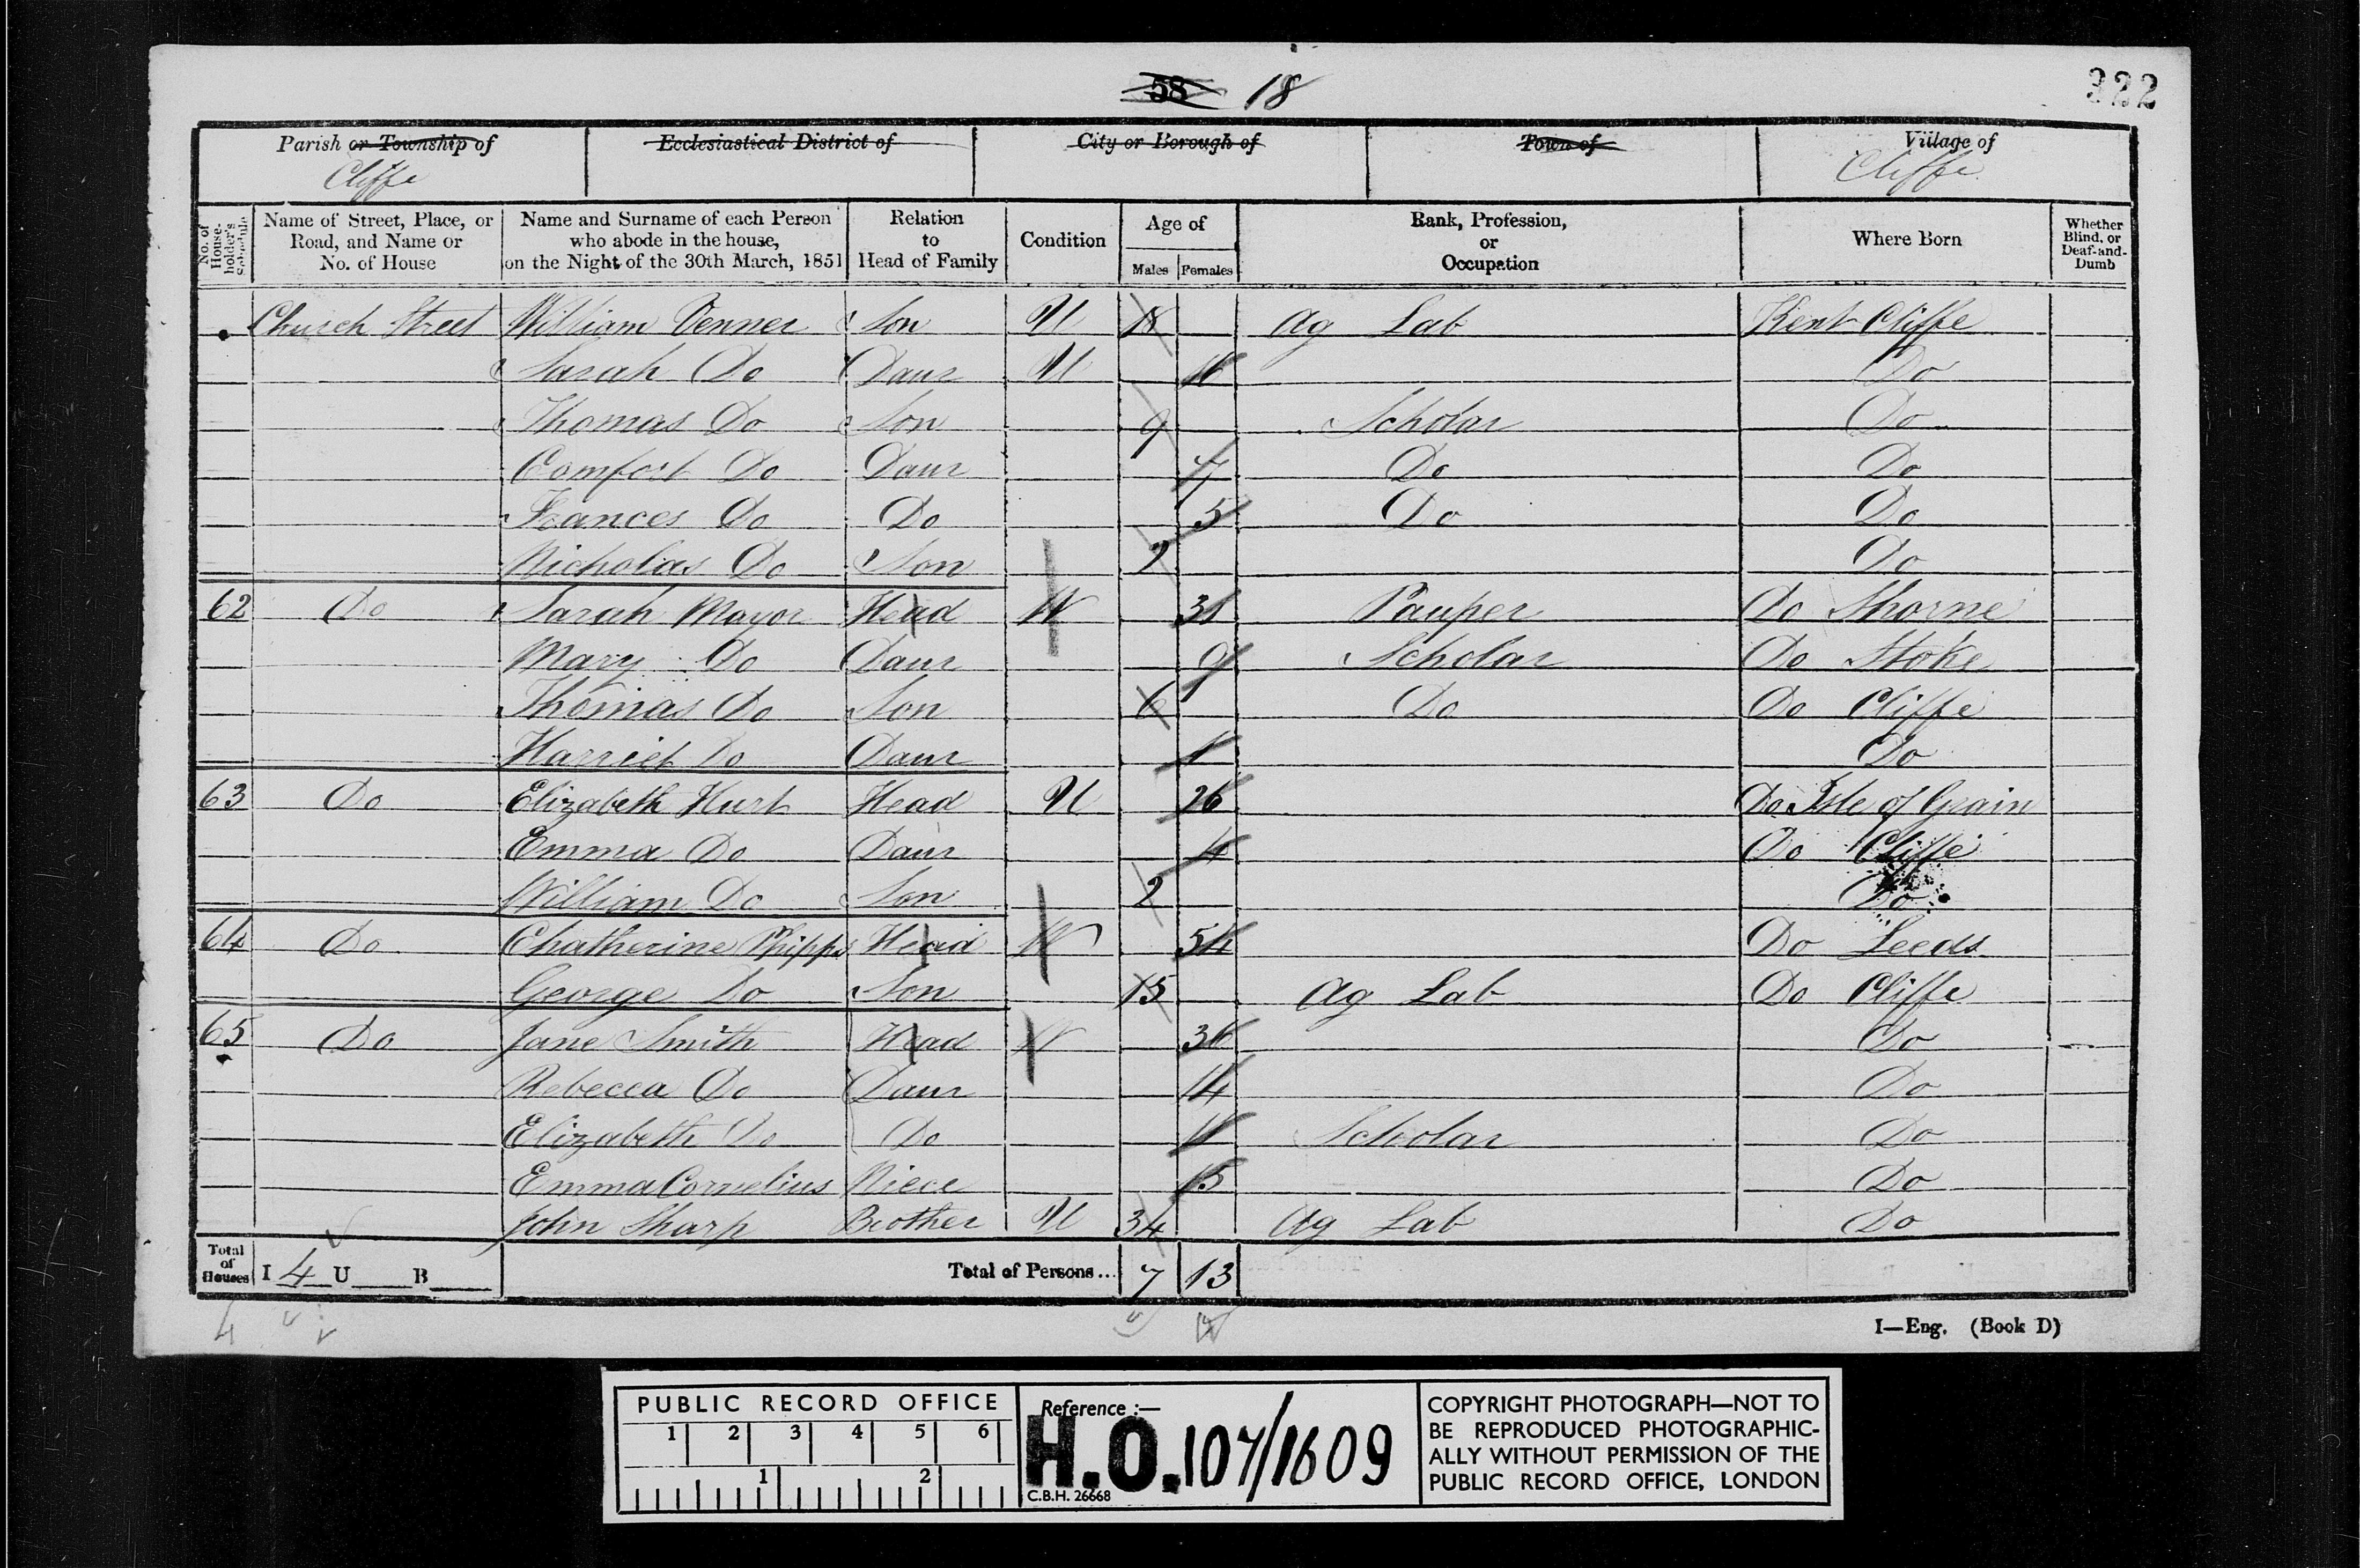 58 18
322
Parish or Township of
Cliffe
Ecclesiastical District of
City or Borough of
Town of
Village of
Cliffe
No. of House-holder's Schedule
Name of Street, Place, or Road, and Name or No. of House
Name and Surname of each Person who abode in the house, on the Night of the 30th March, 1851
Relation to Head of Family
Condition
Age of
Males
Females
Rank, Profession, or Occupation
Where Born
Whether Blind, or Deaf-and-Dumb
Church Street William Venner Son U 18 Ag Lab Kent Cliffe
Sarah Do Daur U Do
Thomas Do Son 9 Scholar Do
Comfort Do Daur 7 Do Do
Frances Do Do 5 Do Do
Nicholas Do Son 2 Do
62 Do Sarah Mayor Head W Pauper Do Shorne
Mary Do Daur 9 Scholar Do Stoke
Thomas Do Son 6 Do Do Cliffe
Harriet Do Daur 1 Do
63 Do Elizabeth Hurt Head U 26 Do Isle of Grain
Emma Do Daur 4 Do Cliffe
William Do Son 2 Do
64 Do Chatherine Phipps Head W 54 Do Leeds
George Do Son 15 Ag Lab Do Cliffe
65 Do Jane Smith Head W 36 Do
Rebecca Do Daur 14 Do
Elizabeth Do Do 11 Scholar Do
Emma Cornelius Niece 15 Do
John Sharp Brother U 34 Ag Lab Do
Total of Houses I 4 U B Total of Persons... 7 13
4
I—Eng. (Book D)
PUBLIC RECORD OFFICE
1 2 3 4 5 6
1 2
Reference :—
H.O. 107/1609
C.B.H. 26668
COPYRIGHT PHOTOGRAPH—NOT TO
BE REPRODUCED PHOTOGRAPHIC-
ALLY WITHOUT PERMISSION OF THE
PUBLIC RECORD OFFICE, LONDON